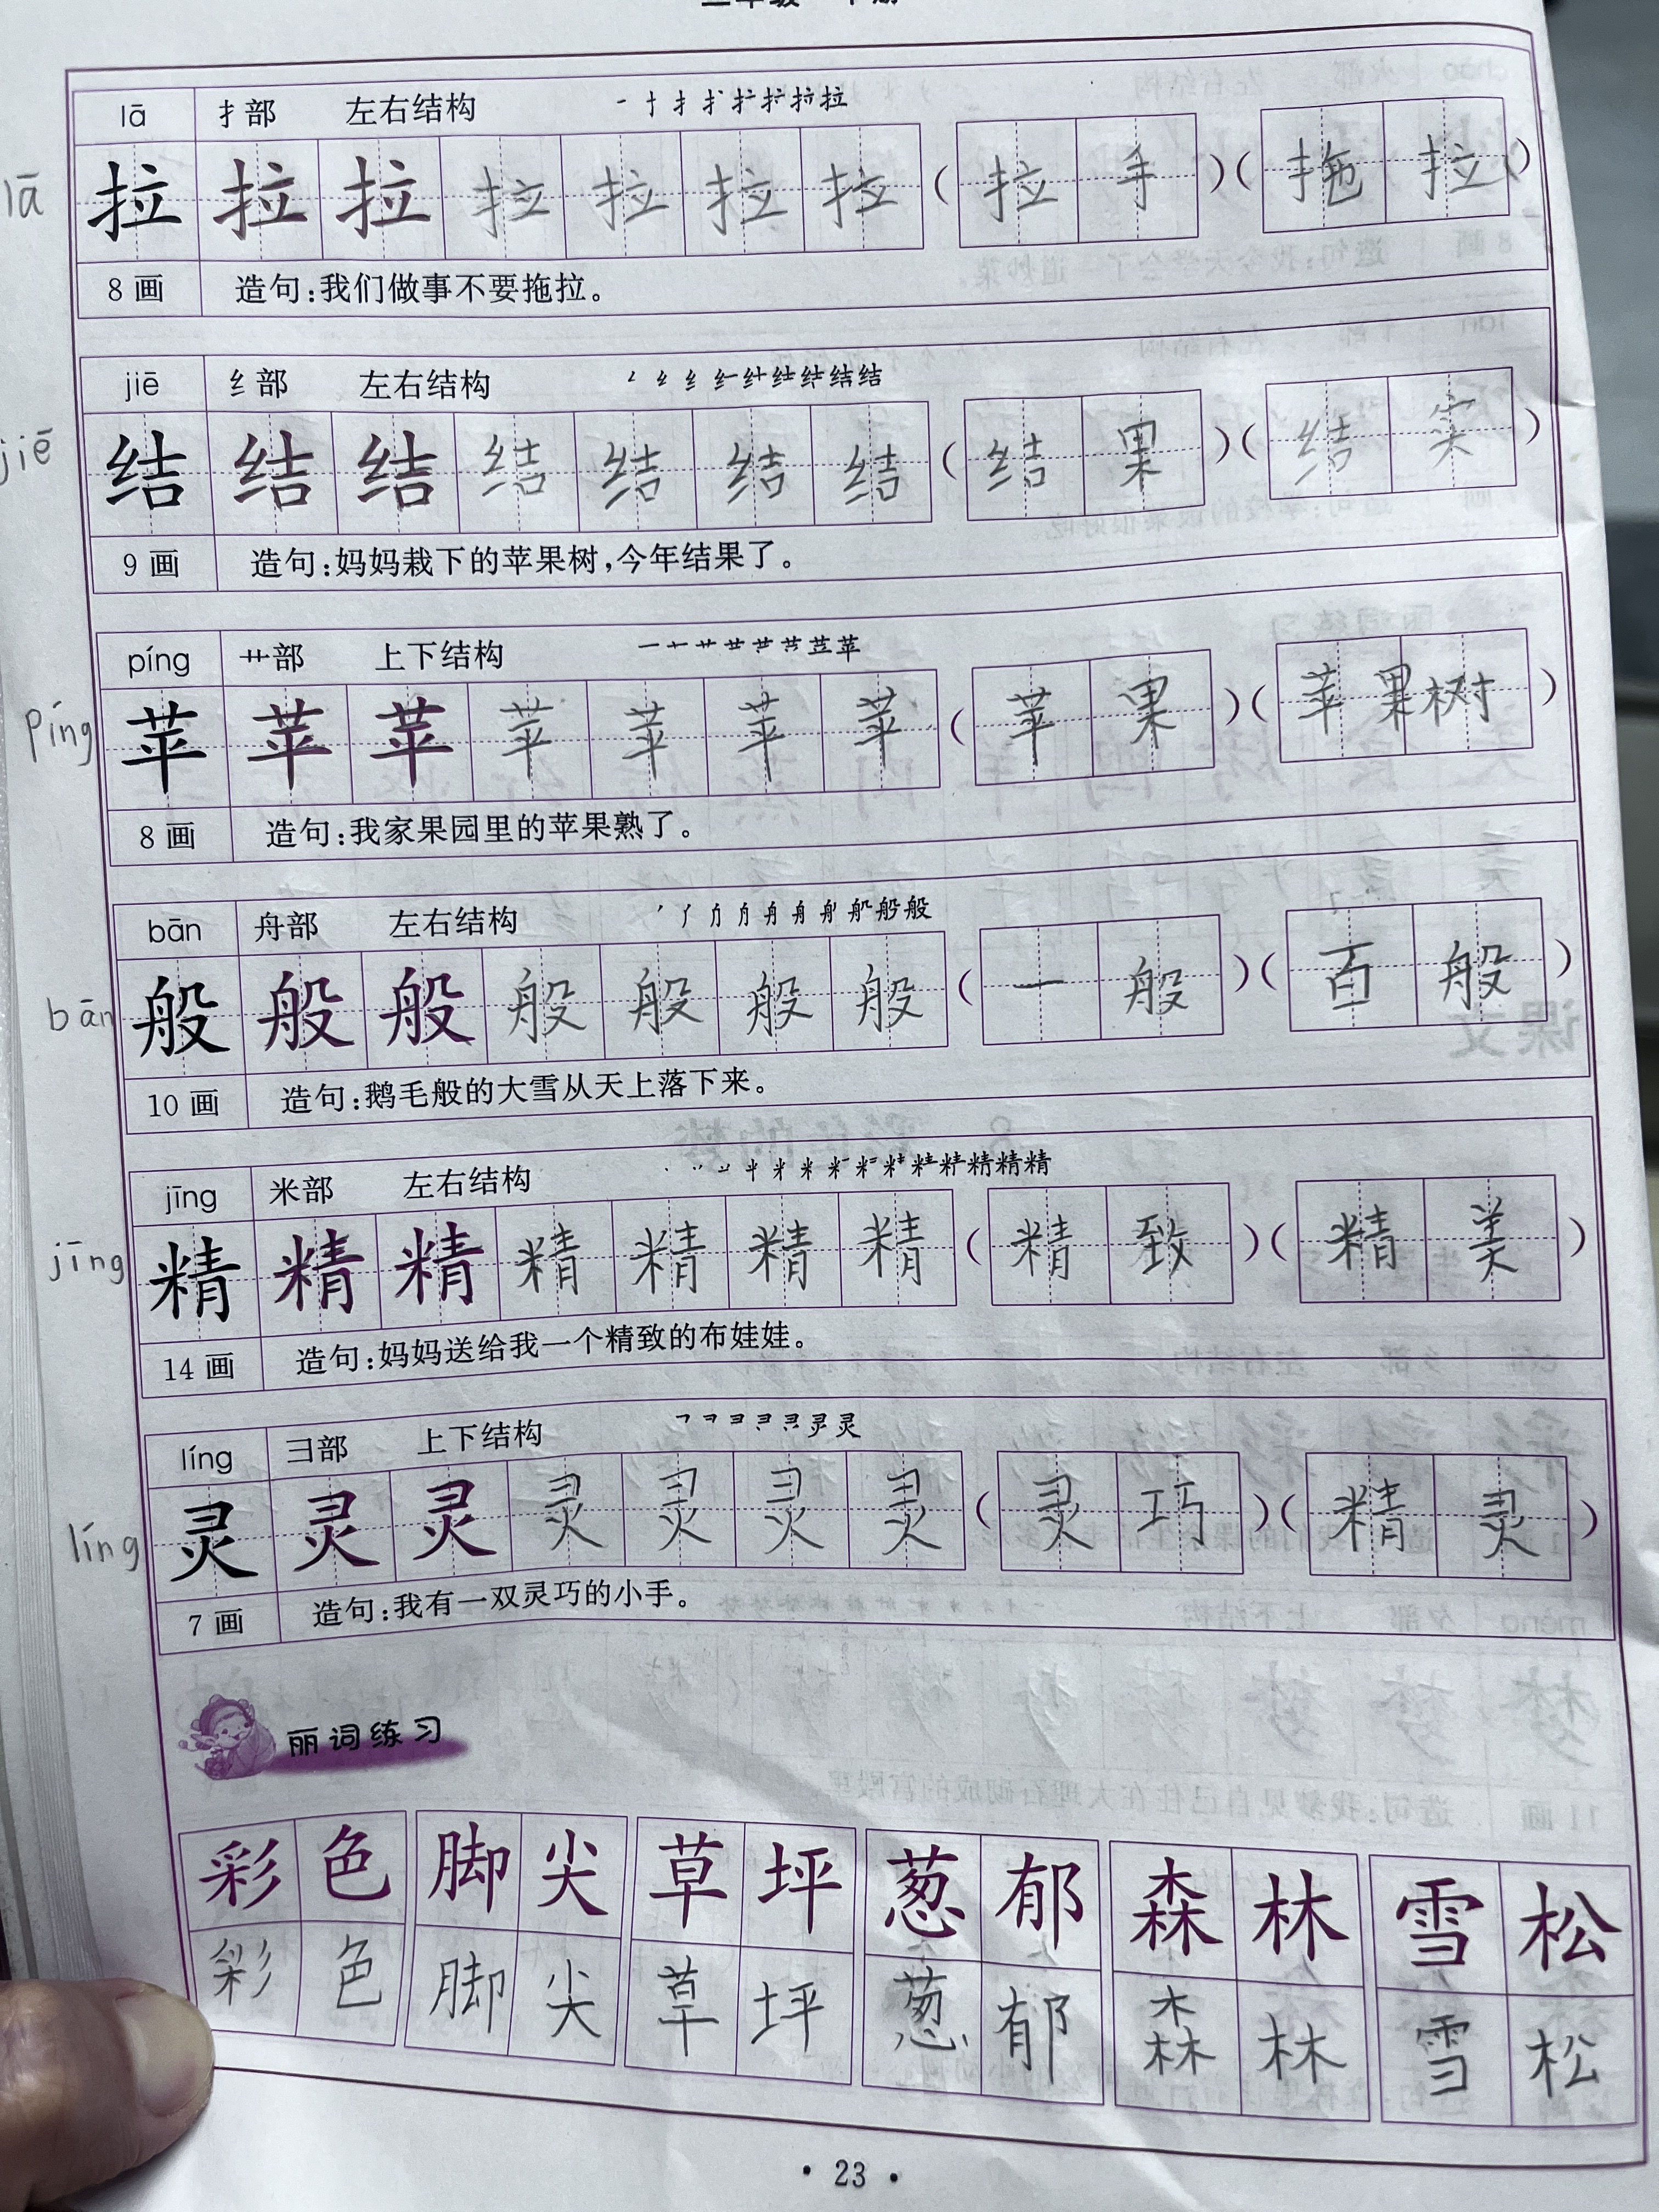 lā 扌部 左右结构
lā 拉 拉 拉 拉 拉 拉 拉 (拉手)(拖拉)
8画 造句:我们做事不要拖拉。
jiē 纟部 左右结构
jiē 结 结 结 结 结 结 结 (结果)(结实)
9画 造句:妈妈栽下的苹果树,今年结果了。
píng 艹部 上下结构
píng 苹 苹 苹 苹 苹 苹 苹 (苹果)(苹果树)
8画 造句:我家果园里的苹果熟了。
bān 舟部 左右结构
bān 般 般 般 般 般 般 般 (一般)(百般)
10画 造句:鹅毛般的大雪从天上落下来。
jīng 米部 左右结构
jīng 精 精 精 精 精 精 精 (精致)(精美)
14画 造句:妈妈送给我一个精致的布娃娃。
líng 彐部 上下结构
líng 灵 灵 灵 灵 灵 灵 灵 (灵巧)(精灵)
7画 造句:我有一双灵巧的小手。
丽词练习
彩色 脚尖 草坪 葱郁 森林 雪松
彩色 脚尖 草坪 葱郁 森林 雪松
·23·